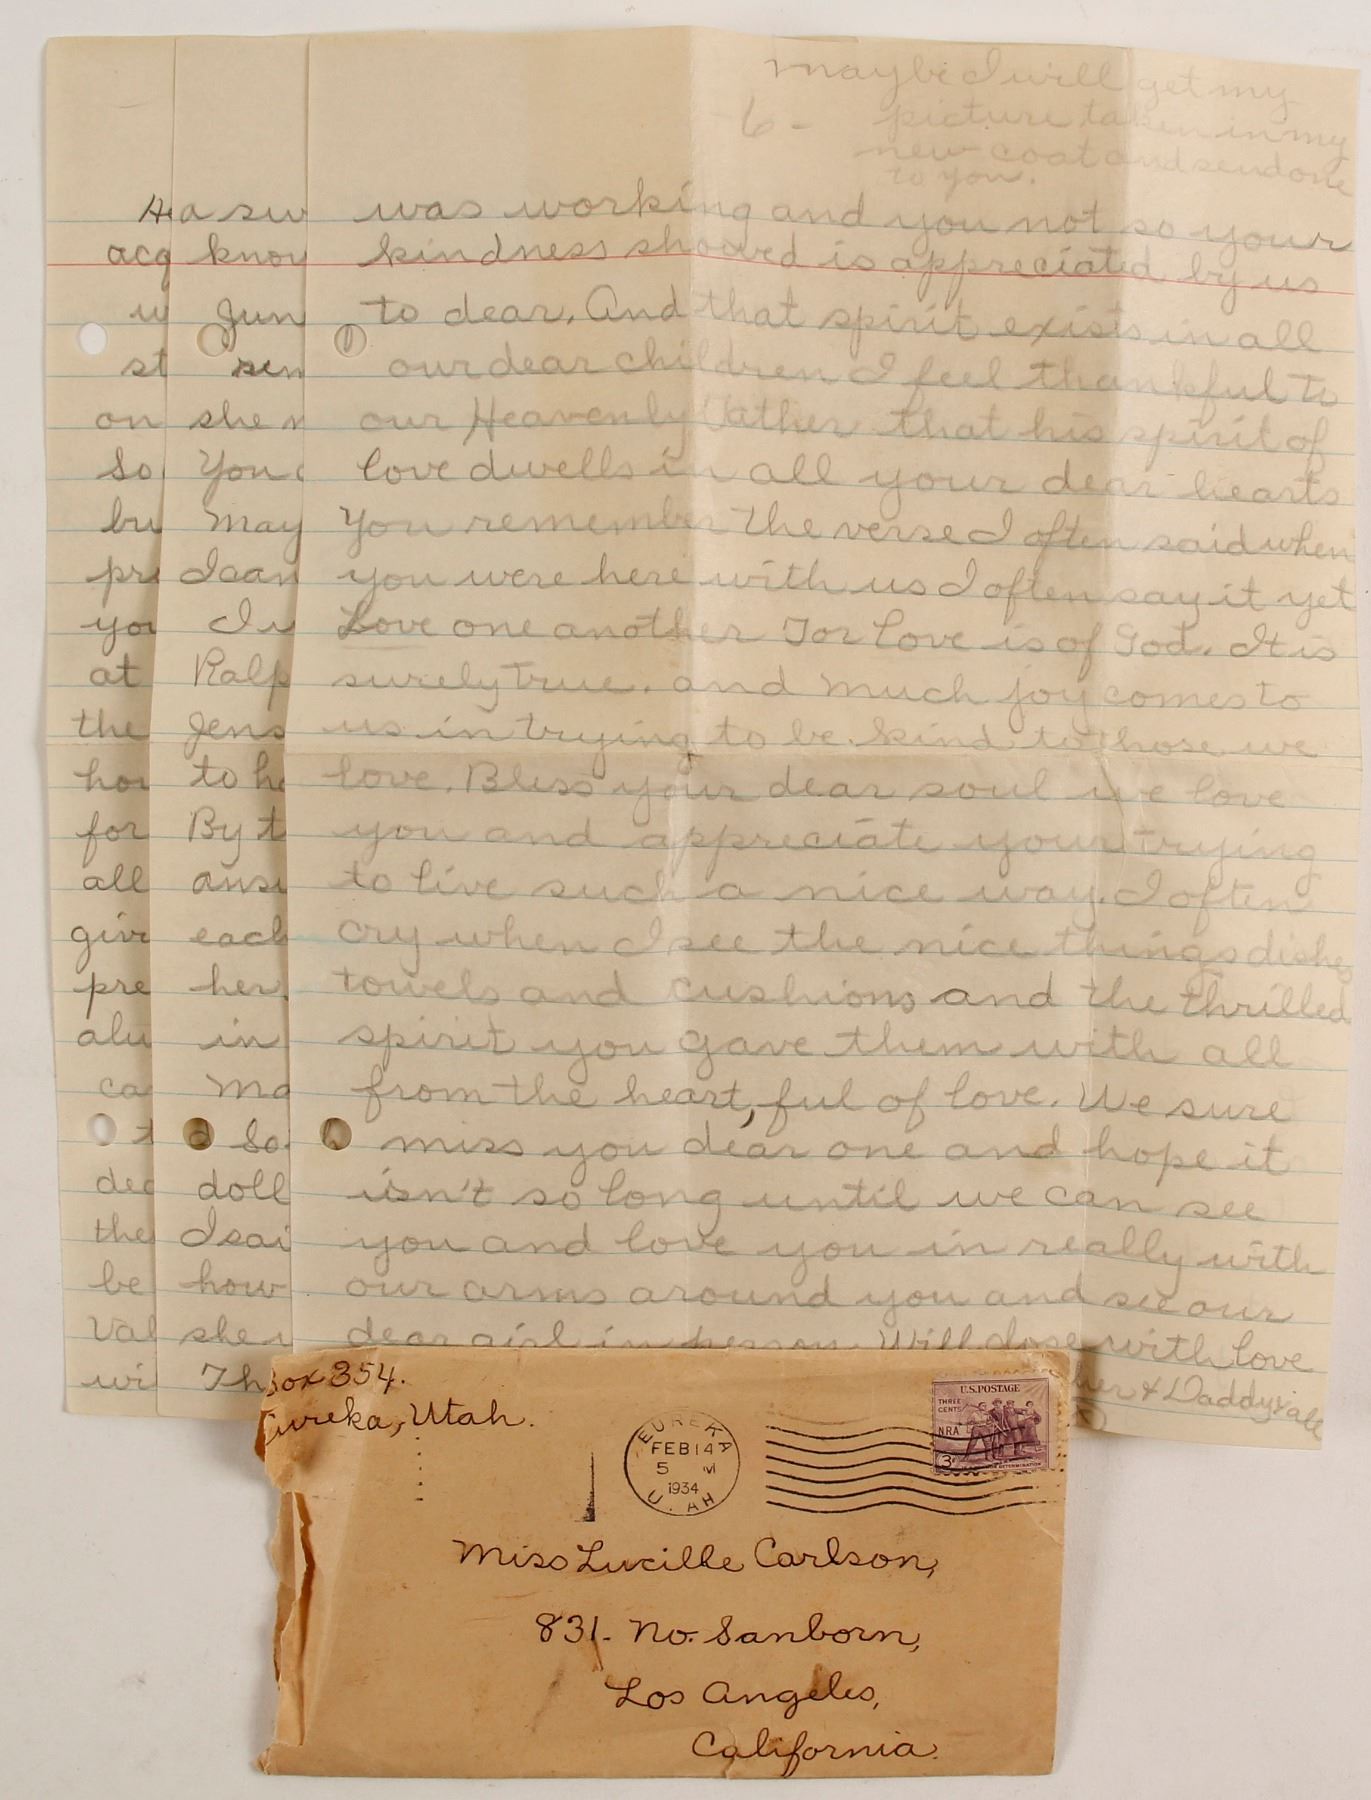 maybe I will get my
picture taken in my
new coat and send one
to you.
- 6 -
was working and you not so your
kindness showed is appreciated by us
to dear. And that spirit exists in all
our dear children I feel thankful to
our Heavenly Father that his spirit of
love dwells in all your dear hearts
You remember the verse I often said when
you were here with us I often say it yet
Love one another For love is of God. It is
surely true. and much joy comes to
us in trying to be kind to those we
love. Bless your dear soul we love
you and appreciate your trying
to live such a nice way. I often
cry when I see the nice things dishes
towels and cushions and the thrilled
spirit you gave them with all
from the heart, ful of love. We sure
miss you dear one and hope it
isn't so long until we can see
you and love you in really with
our arms around you and see our
dear girl in person. Will close with love
& Daddy & all
a sw
know
Jun
sen
she n
You
May
I can
I w
Ralp
Jens
to he
By t
answ
each
her.
in
Ma
So
doll
I sai
how
she
Th
acq
st
on
So
bu
pre
you
at
the
hou
for
all
give
pre
alw
ca
t
dea
the
be
Val
wi
Box 354.
Eureka, Utah.
EUREKA
FEB 14
5 M
1934
UTAH
U.S. POSTAGE
THREE
CENTS
NRA
3¢
Miss Lucille Carlson,
831- No. Sanborn,
Los Angeles,
California.